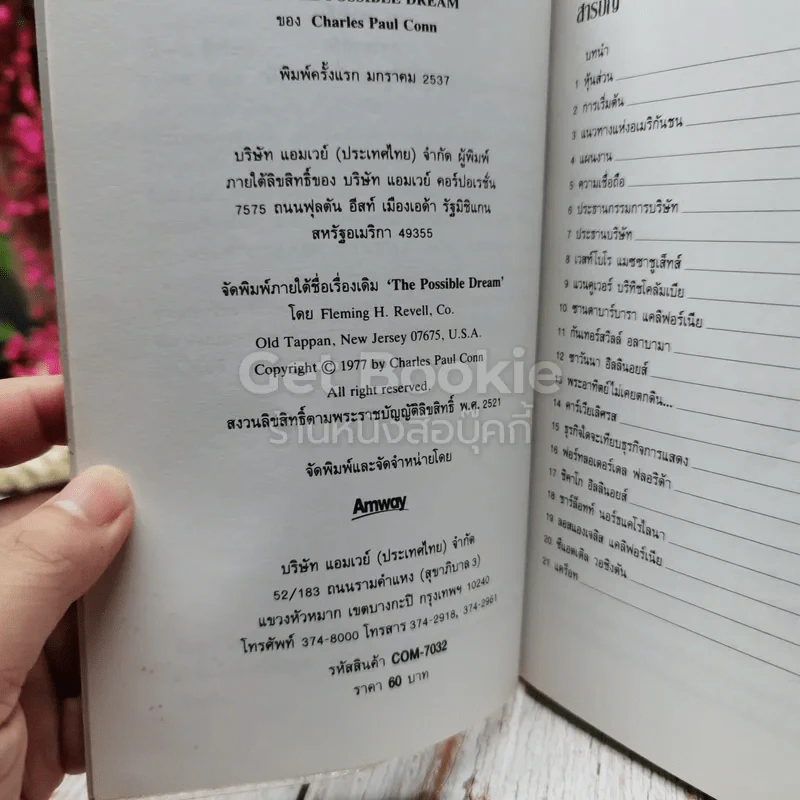 POSSIBLE DREAM
ของ Charles Paul Conn
พิมพ์ครั้งแรก มกราคม 2537
บริษัท แอมเวย์ (ประเทศไทย) จำกัด ผู้พิมพ์
ภายใต้ลิขสิทธิ์ของ บริษัท แอมเวย์ คอร์ปอเรชั่น
7575 ถนนฟุลตัน อีสท์ เมืองเอด้า รัฐมิชิแกน
สหรัฐอเมริกา 49355
จัดพิมพ์ภายใต้ชื่อเรื่องเดิม ‘The Possible Dream’
โดย Fleming H. Revell, Co.
Old Tappan, New Jersey 07675, U.S.A.
Copyright © 1977 by Charles Paul Conn
All right reserved.
สงวนลิขสิทธิ์ตามพระราชบัญญัติลิขสิทธิ์ พ.ศ. 2521
จัดพิมพ์และจัดจำหน่ายโดย
Amway
บริษัท แอมเวย์ (ประเทศไทย) จำกัด
52/183 ถนนรามคำแหง (สุขาภิบาล 3)
แขวงหัวหมาก เขตบางกะปิ กรุงเทพฯ 10240
โทรศัพท์ 374-8000 โทรสาร 374-2918, 374-2961
รหัสสินค้า COM-7032
ราคา 60 บาท
สารบัญ
บทนำ
1 หุ้นส่วน
2 การเริ่มต้น
3 แนวทางแห่งอเมริกันชน
4 แผนงาน
5 ความเชื่อถือ
6 ประธานกรรมการบริษัท
7 ประธานบริษัท
8 เวสท์โบโร แมสซาชูเส็ทส์
9 แวนคูเวอร์ บริทิชโคลัมเบีย
10 ซานตาบาร์บารา แคลิฟอร์เนีย
11 กันเทอร์สวิลล์ อลาบามา
12 ซาวันนา อิลลินอยส์
13 พระอาทิตย์ไม่เคยตกดิน...
14 คาร์เวียเลิศรส
15 ธุรกิจใดจะเทียบธุรกิจการแสดง
16 ฟอร์ทลอเดอร์เดล ฟลอริด้า
17 ชิคาโก อิลลินอยส์
18 ชาร์ล็อทท์ นอร์ธแคโรไลนา
19 ลอสแองเจลิส แคลิฟอร์เนีย
20 ซีแอตเติล วอชิงตัน
21 แคร็อท
Get Bookie
ร้านหนังสือบุ๊คกี้